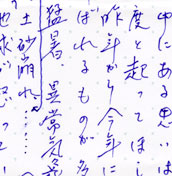 中にある思いは
度と起ってほし
昨年から今年に
ばれるものが多
猛暑、異常気象
土砂崩れ……
地球が怒ってい